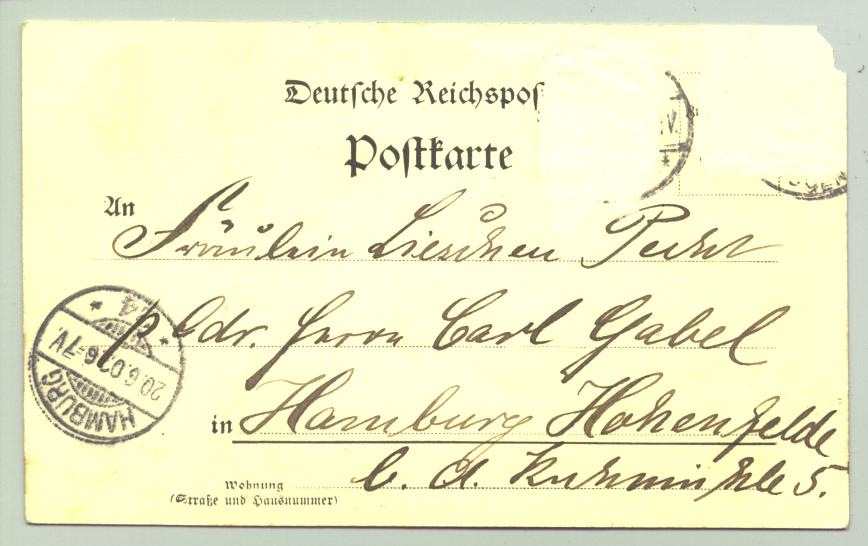 Deutsche Reichspos
Postkarte
V.
OGEN
An
Fräulein Lieschen Pecht
p. Adr. Herrn Carl Gabel
in Hamburg Hohenfelde
b. d. Kuhmühle 5.
Wohnung
(Straße und Hausnummer)
HAMBURG
20.6.02 6-7V.